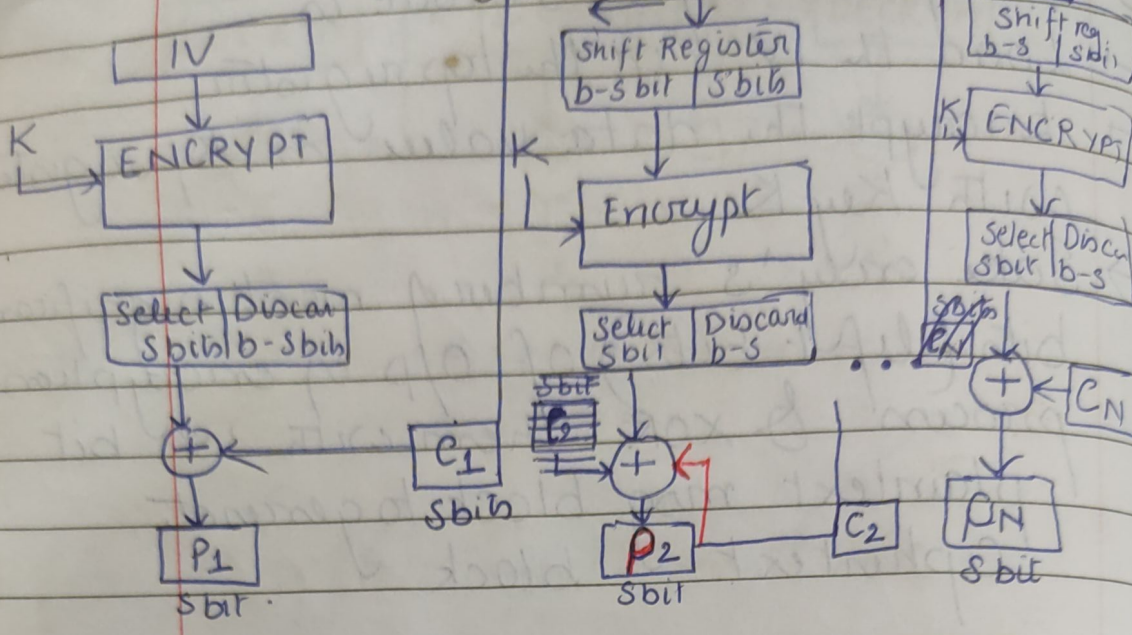 IV
K
ENCRYPT
Select Discar
Sbits b-Sbits
+
C1
Sbits
P1
Sbit
Shift Register
b-sbit Sbits
K
Encrypt
Select Discard
Sbit b-s
Sbit
+
P2
Sbit
C2
Shift reg
b-s Sbit
K
ENCRYPT
Select Disca
Sbit b-s
+
CN
PN
Sbit